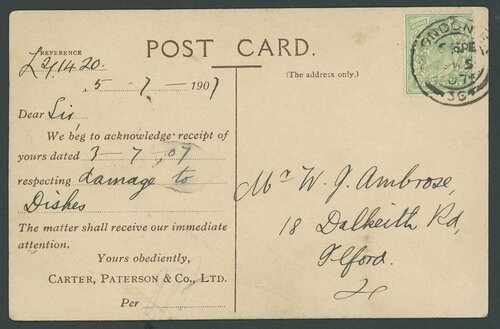 POST CARD.
REFERENCE
L 21420.
(The address only.)
5-7-1907
Dear Sir
We beg to acknowledge receipt of
yours dated 3-7-07
respecting damage to
Dishes
The matter shall receive our immediate
attention.
Yours obediently,
CARTER, PATERSON & Co., LTD.
Per
Mr W. J. Ambrose,
18 Dalkeith Rd,
Ilford.
LONDON
JY 5
07